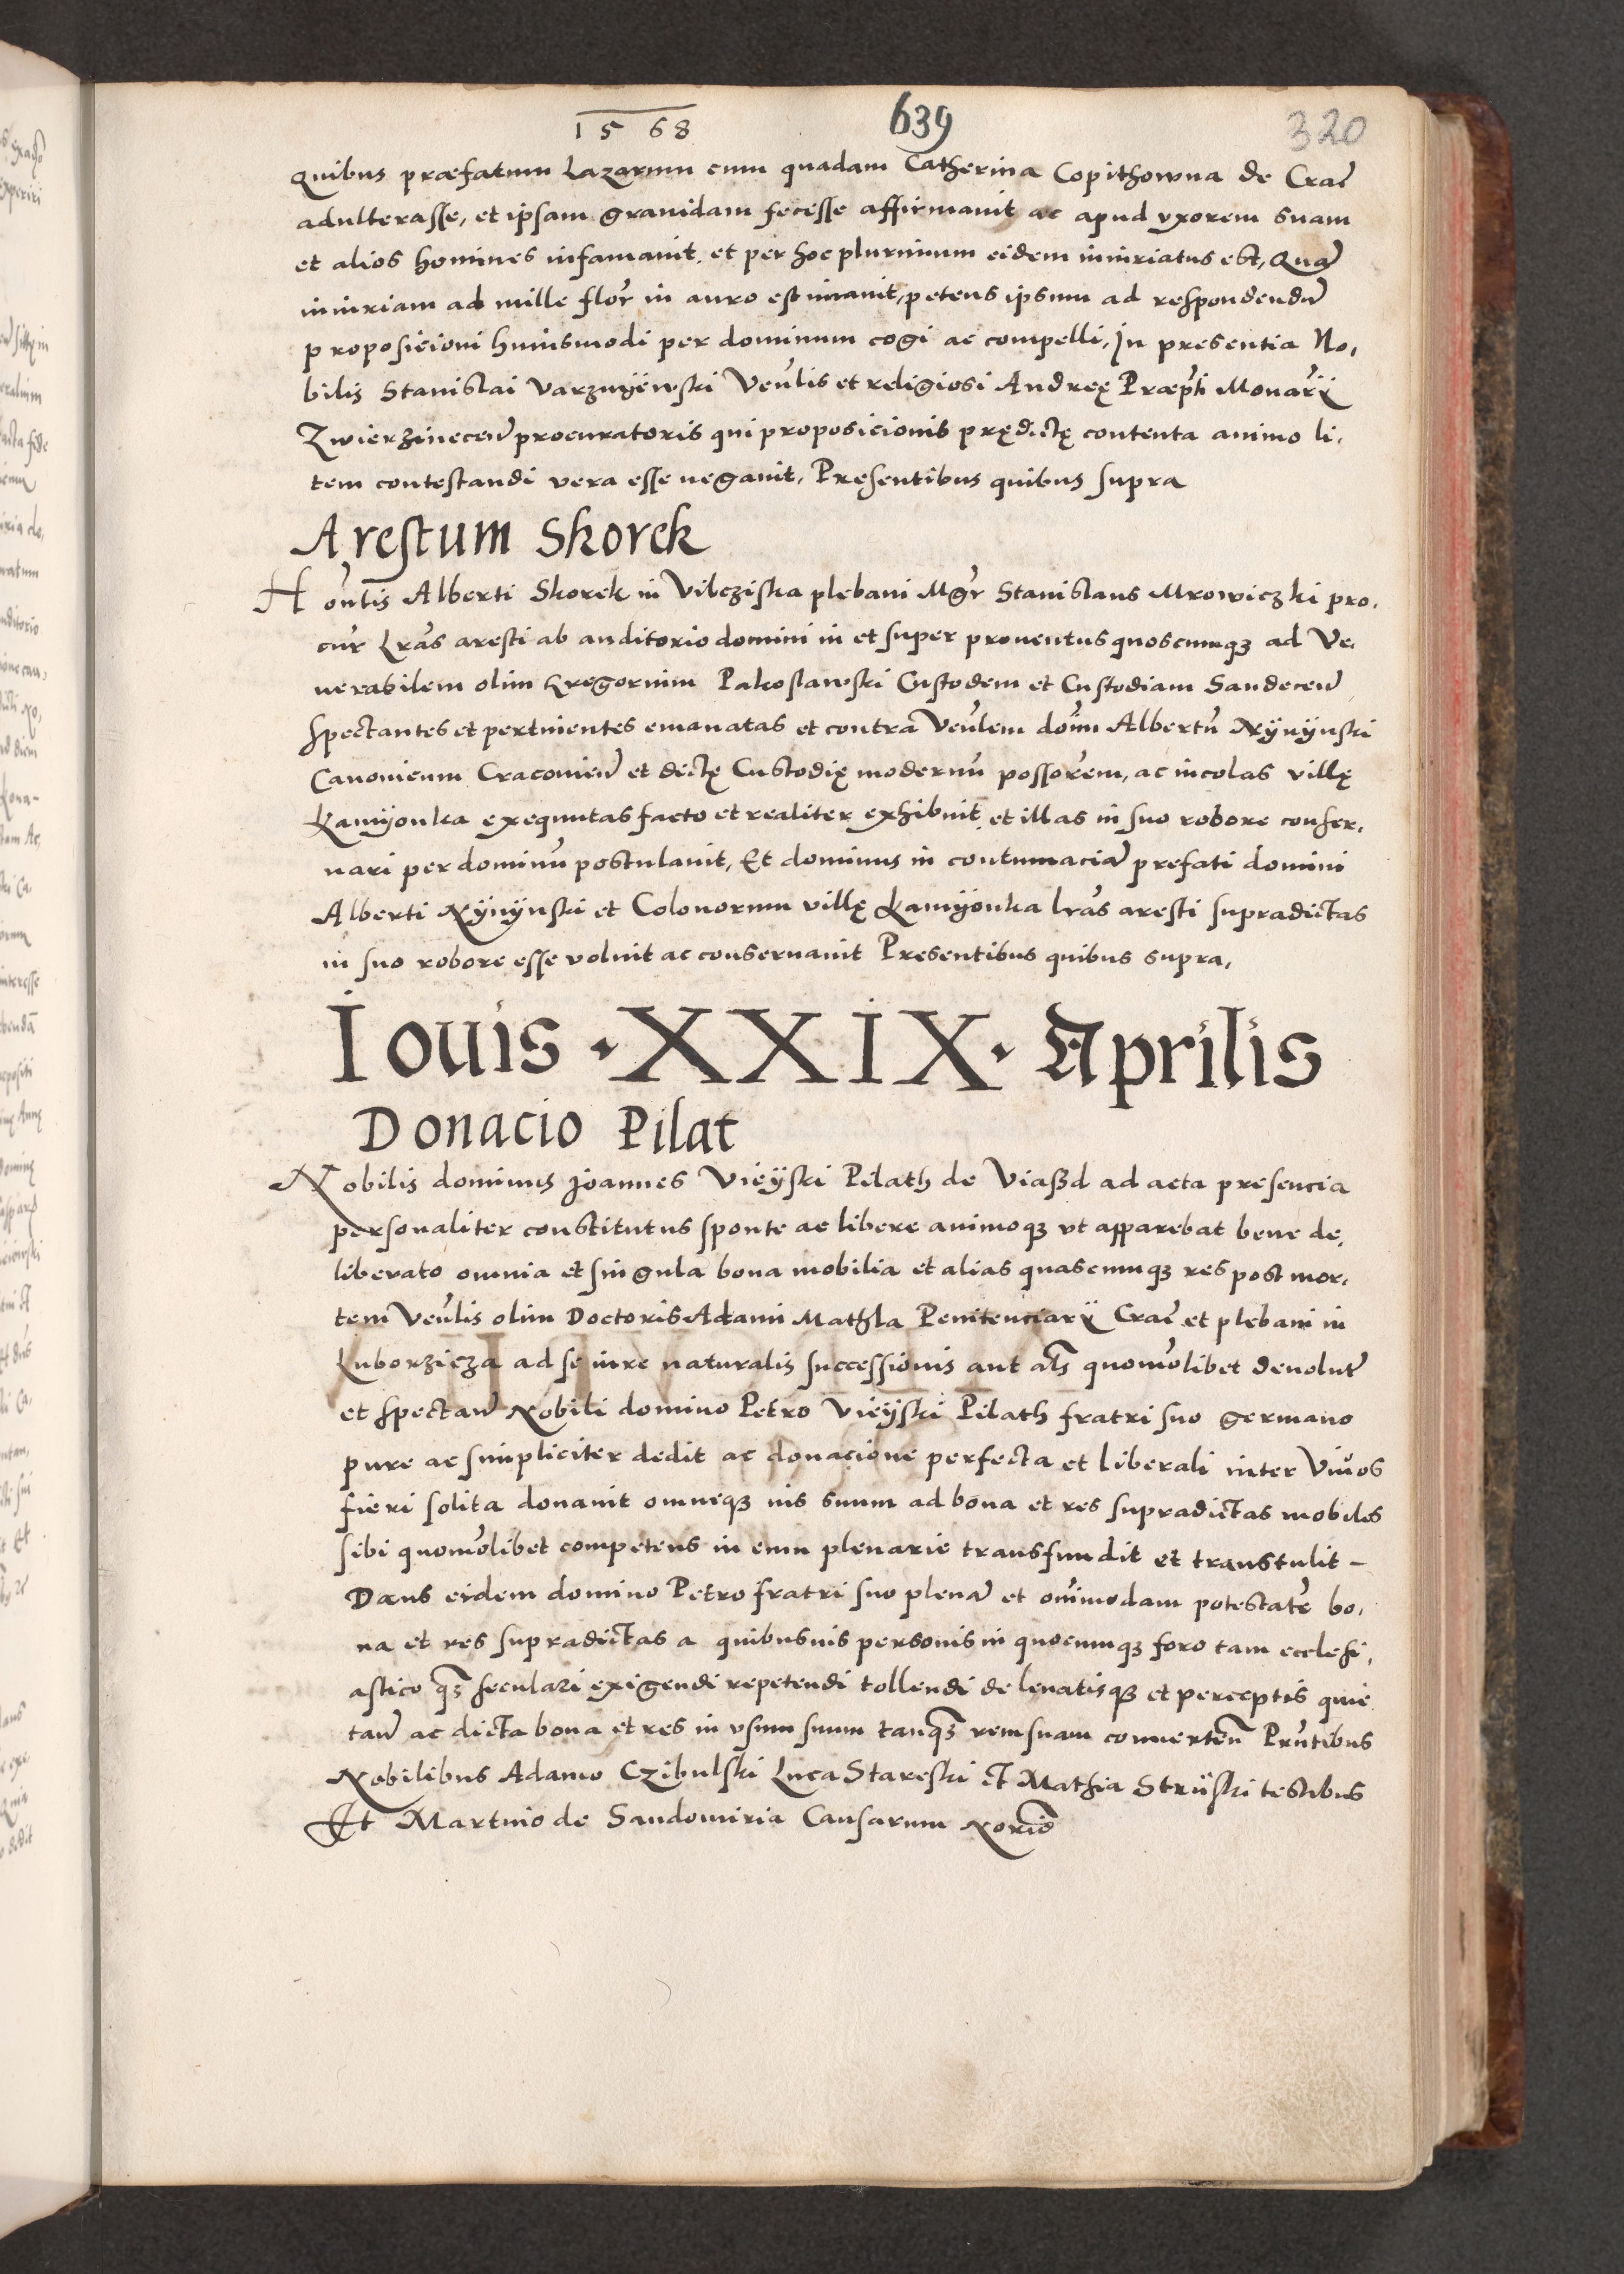 1568 639 320
Quibus præfatum Lazarum cum quadam Catherina Copithowna de Crac̃
adulterasse, et ipsam grauidam fecisse affirmauit ac apud vxorem suam
et alios homines infamauit. et per hoc plurimum eidem iniuriatus est, Quam̃
iniuriam ad mille flor̃ in auro estimauit, petens ipsum ad respondendũ
proposicioni huiusmodi per dominum cogi ac compelli, In presentia No,
bilis Stanislai Varznÿewski Veñlis et religiosi Andreę Præpt̃i Monar̃ÿ
Zwierzineceñ procuratoris qui proposicionis prędictę contenta animo li,
tem contestandi vera esse negauit, Presentibus quibus supra
Arestum Skorek
Hon̈tis Alberti Skorek in Vilcziska plebani Mgr̃ Stanislaus Mrowiczki pro,
cur̃ Lr̃as aresti ab auditorio domini in et super prouentus quoscumqꝫ ad Ve,
nerabilem olim Gregorium Pakoslawski Custodem et Custodiam Sandeceñ
spectantes et pertinentes emanatas et contra Veñlem dom̃ Albertũ Nÿnÿnski
Canonicum Cracouieñ et dictę Custodię modernũ possor̃em, ac incolas villę
Kamÿonka exequutas facto et realiter exhibuit et illas in suo robore confer,
uari per dominũ postulauit, Et dominus in contumaciam̃ prefati domini
Alberti Nÿnÿnski et Colonorum villę Kamÿonka lr̃as aresti supradictas
in suo robore esse voluit ac conseruauit Presentibus quibus supra,
Iouis · XXIX · Aprilis
Donacio Pilat
Nobilis dominus Joannes Vieÿski Pilath de Viaßd ad acta presencia
personaliter constitutus sponte ac libere animoqꝫ vt apparebat bene de,
liberato omnia et singula bona mobilia et alias quascumqꝫ res post mor,
tem Veñlis olim Doctoris Adami Mathla Penitenciarÿ Crac̃ et plebani in
Luborzicza ad se iure naturalis successionis aut als̃ quomo͂libet deuolut̃
et spectañ Nobili domino Petro Vieÿski Pilath fratri suo germano
pure ac simpliciter dedit ac donacione perfecta et liberali inter Viuos
fieri solita donauit omneqꝫ ius suum ad bona et res supradictas mobiles
sibi quomo͂libet competens in eum plenarie transfundit et transtulit –
Dans eidem domino Petro fratri suo plenam̃ et om̃imodam potestatẽ bo,
na et res supradictas a quibusuis personis in quocumqꝫ foro tam ecclesi,
astico qꝫ̃ seculari exigendi repetendi tollendi de leuatisqꝫ et perceptis quie
tañ ac dicta bona et res in vsum suum tanqꝫ̃ rem suam conuerteñ Prñtibus
Nobilibus Adamo Czibulski Luca Stareski et Mathia Strÿski testibus
Et Martino de Sandomiria Causarum Norio͂